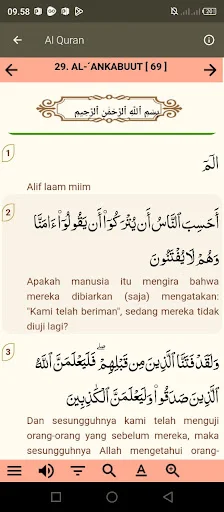 09.58
20
Al Quran
29. AL-´ANKABUUT [ 69 ]
بِسْمِ اللَّهِ الرَّحْمَٰنِ الرَّحِيمِ
1
الٓمٓ
Alif laam miim
2
أَحَسِبَ ٱلنَّاسُ أَن يُتْرَكُوٓا۟ أَن يَقُولُوٓا۟ ءَامَنَّا
وَهُمْ لَا يُفْتَنُونَ
Apakah manusia itu mengira bahwa
mereka dibiarkan (saja) mengatakan:
"Kami telah beriman", sedang mereka tidak
diuji lagi?
3
وَلَقَدْ فَتَنَّا ٱلَّذِينَ مِن قَبْلِهِمْ ۖ فَلَيَعْلَمَنَّ ٱللَّهُ
ٱلَّذِينَ صَدَقُوا۟ وَلَيَعْلَمَنَّ ٱلْكَٰذِبِينَ
Dan sesungguhnya kami telah menguji
orang-orang yang sebelum mereka, maka
sesungguhnya Allah mengetahui orang-
A